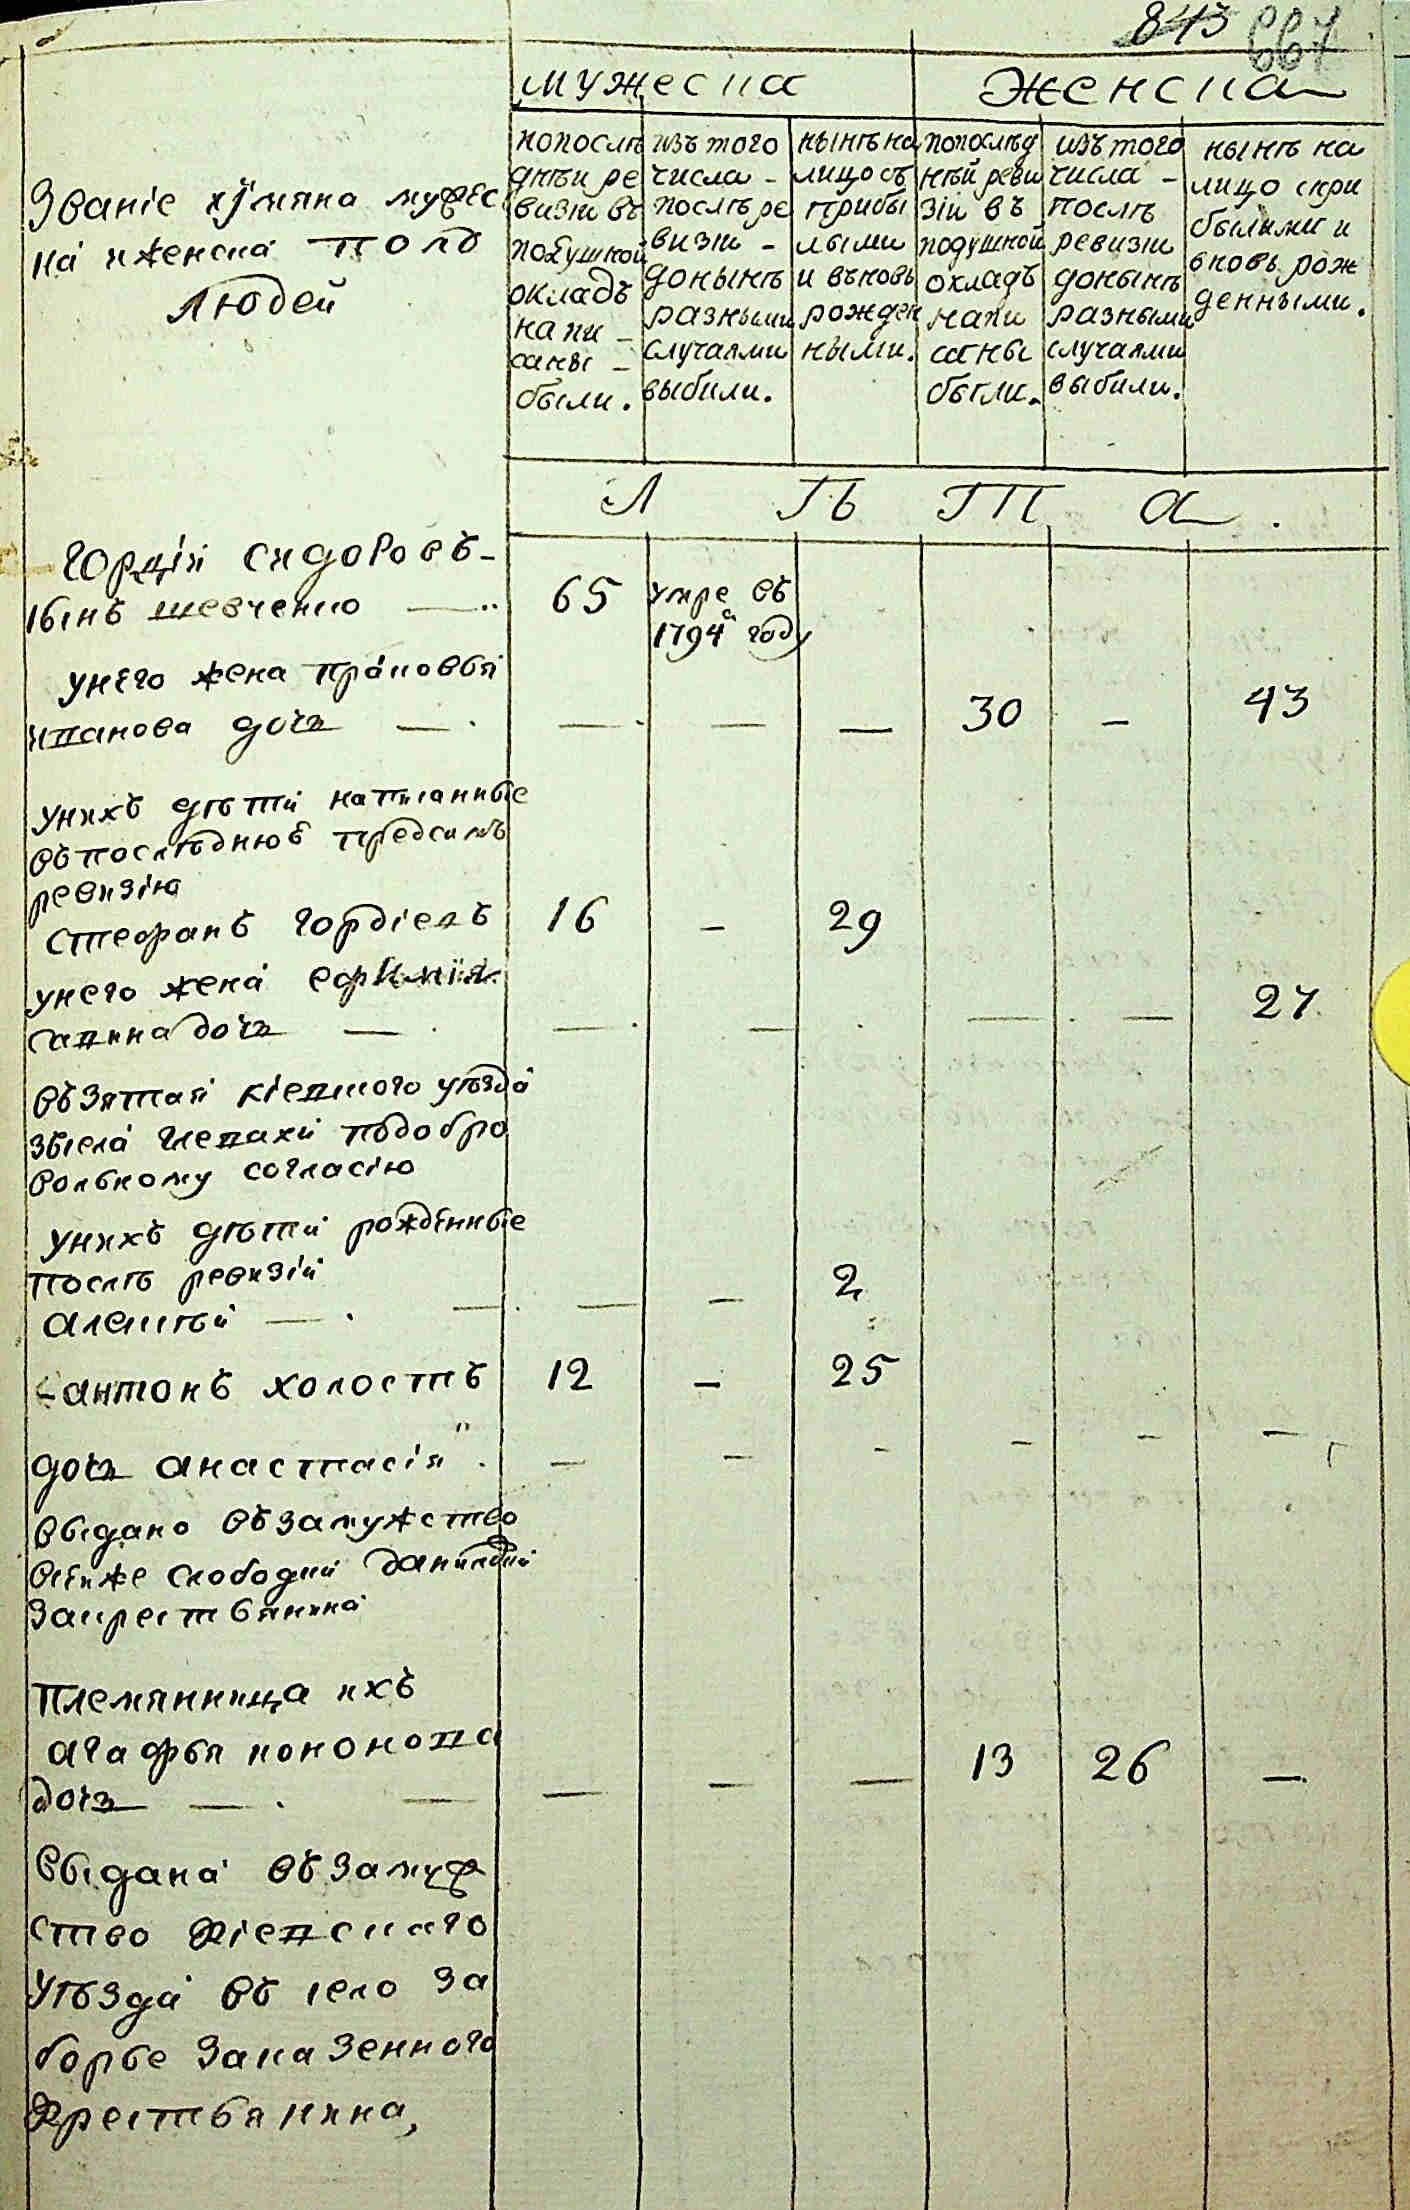 843 667
мужеска женска
Званіе і имяна мужес
ка и женска полъ
людей
попослѣ
днѣи ре
визіи въ
подушной
окладъ
напи –
саны –
были.
изъ того
числа –
послѣ ре
визіи –
донынѣ
разными
случаями
выбили.
нынѣ на
лицо съ
прибы
лыми
и въновь
рожден
ными.
попослѣд
нѣй реви
зіи въ
подушной
окладъ
напи
саны
были.
изъ того
числа –
послѣ
ревизіи
донынѣ
разными
случаями
выбили.
нынѣ на
лицо спри
былими и
вновь рож
денными.
Л Ѣ Т А .
Гордій сидоровъ –
сынъ шевченко — 65 умре въ
1794г году
унего жена прасковья
степанова дочь — . — — — 30 – 43
унихъ дѣти написанные
въпослѣднюю предсимъ
ревизію
стефанъ гордіевъ 16 – 29
унего жена ефимія
савина дочь — — — — — 27
въятая кіевского уѣзда
зсела глевахи подобро
вольному согласію
унихъ дѣти рожденные
послѣ ревизій
алексѣй — . — — – 2
антонъ холостъ 12 – 25
дочь анастасія . – – – – – –
выдано въ замужство
всейже слободки
закрестьянина
племянница ихъ
агафья кононова
дочь — . — — – — 13 26 –
выдана въ замуж
ство кіевскаго
уѣзда въ село за
борье заказенного
крестьянина,